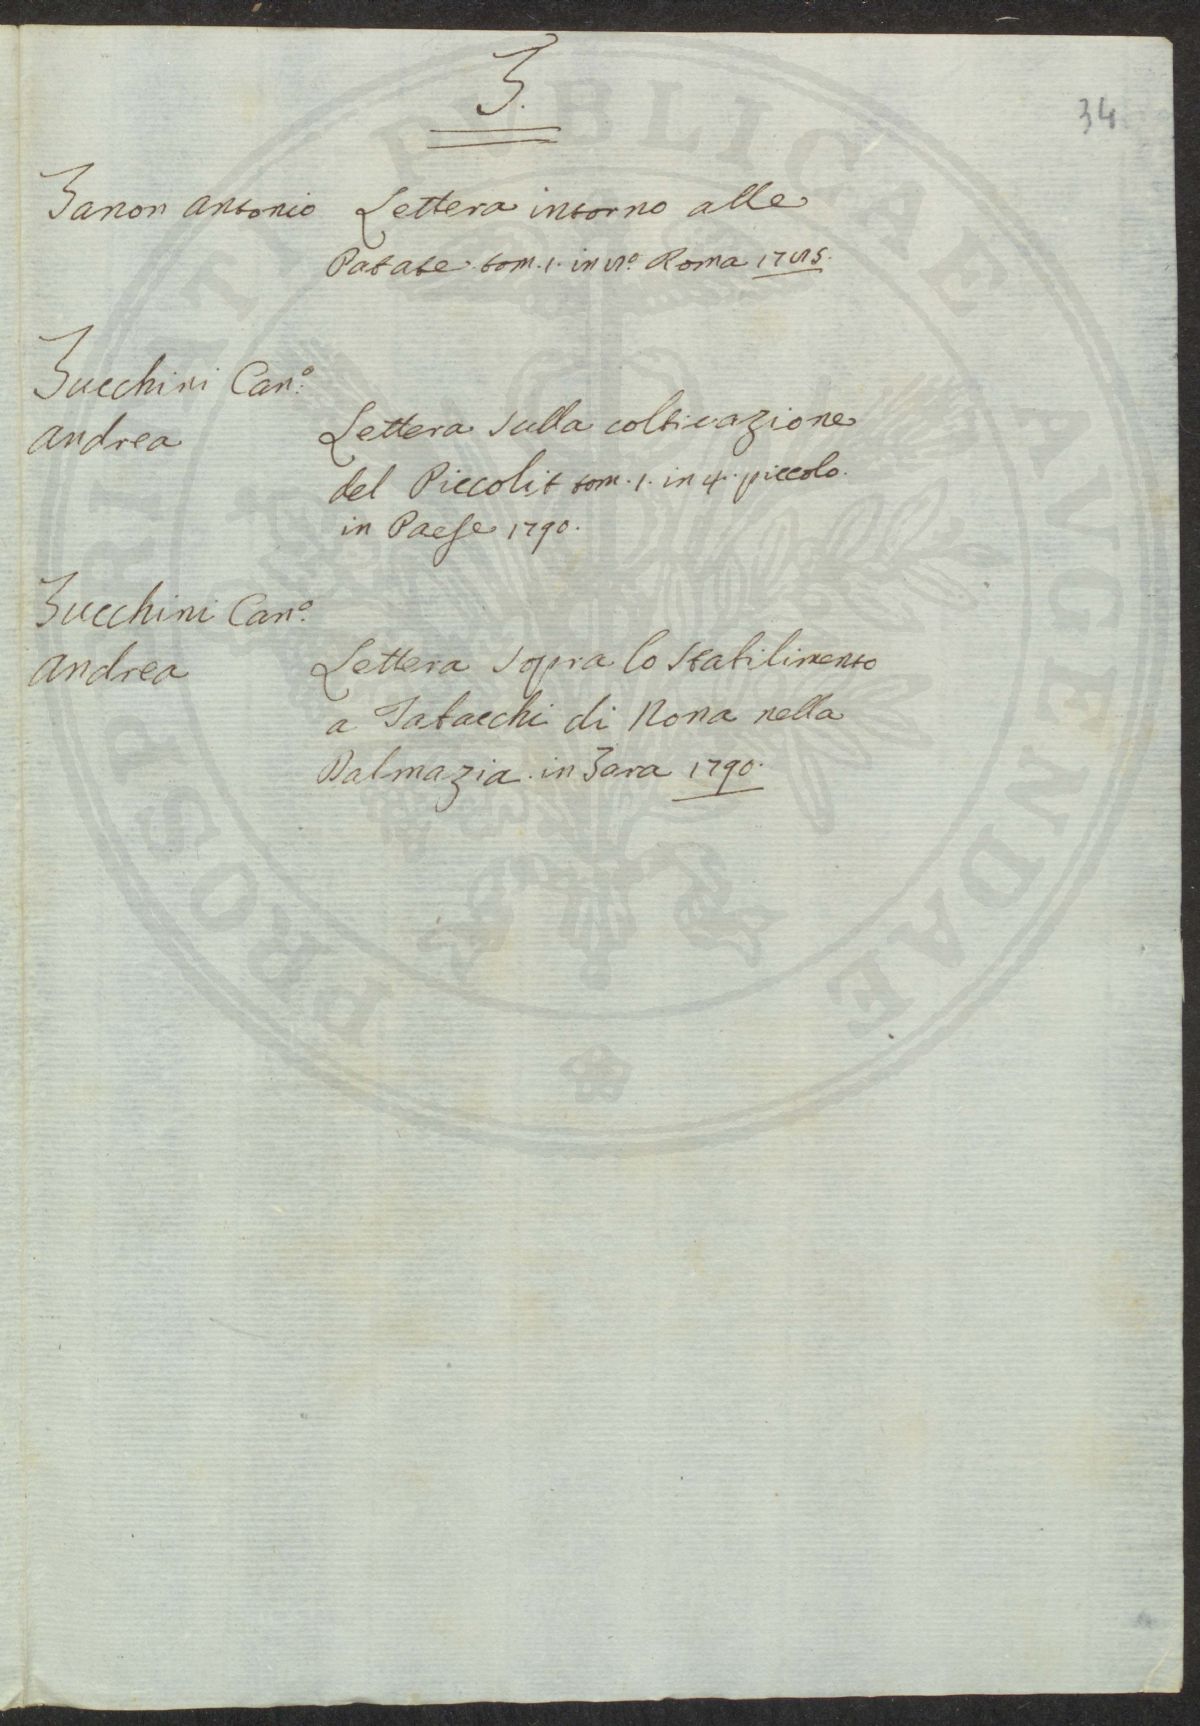 Z.
34
Zanon Antonio Lettera intorno alle
Patate tom. 1. in 8º. Roma 1785.
Zucchini Canº.
Andrea Lettera sulla coltivazione
del Piccolit tom. 1. in 4. piccolo.
in Paese 1790.
Zucchini Canº.
Andrea Lettera sopra lo stabilimento
a Tabacchi di Nona nella
Dalmazia. in Zara 1790.
PROSPERITATI PUBLICAE AUGENDAE